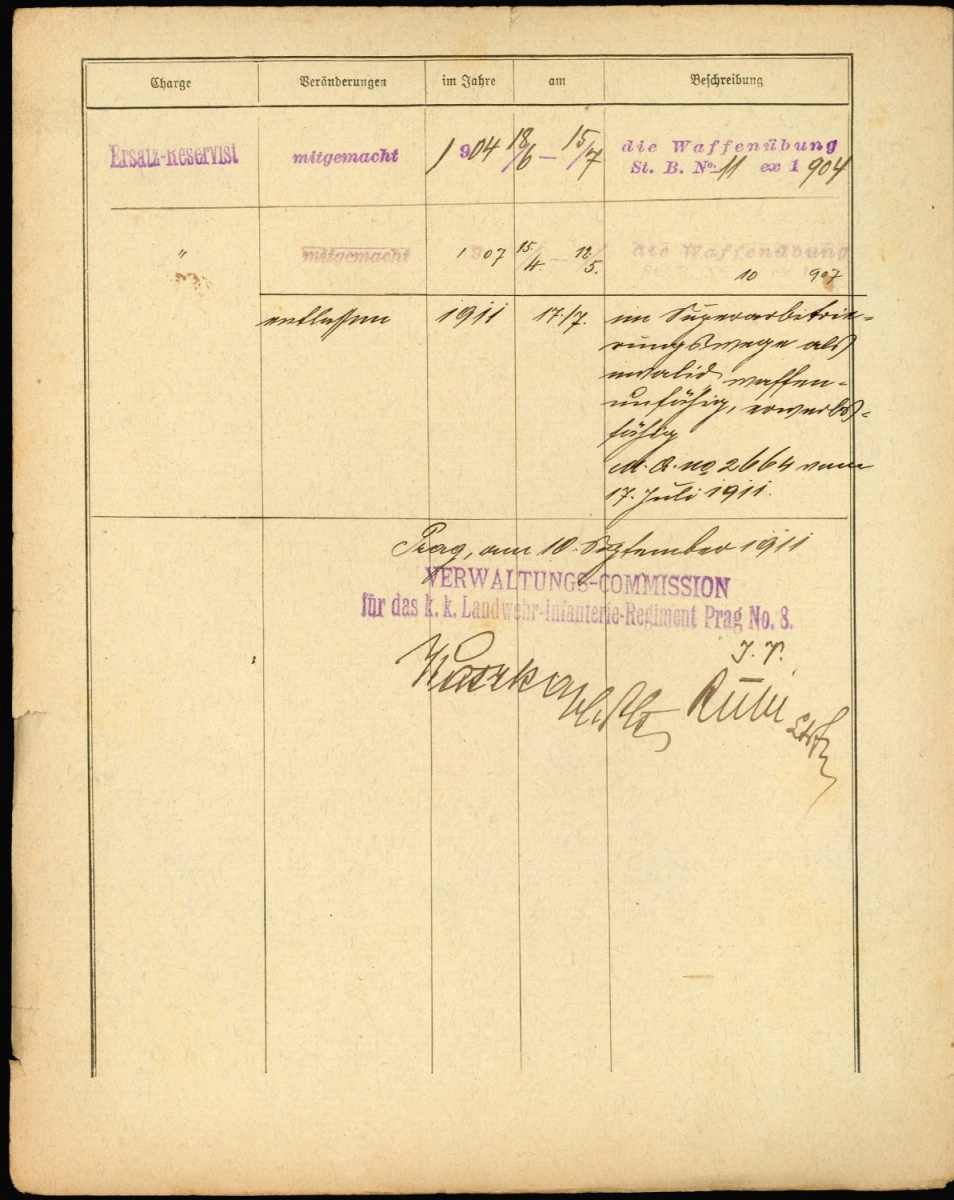 Charge Veränderungen im Jahre am Beschreibung
Ersatz-Reservist mitgemacht 1904 18/6 — 15/7 die Waffenübung
St. B. No. 11 ex 1904
" mitgemacht 1907 15/4. — 12/5. die Waffenübung
10 907
entlassen 1911 17./7. im Superarbitrie-
rungswege als
invalid, waffen-
unfähig, erwerbs-
fähig
M. A. no 2664 vom
17. Juli 1911.
Prag, am 10. September 1911
VERWALTUNGS-COMMISSION
für das k. k. Landwehr-Infanterie-Regiment Prag No. 8.